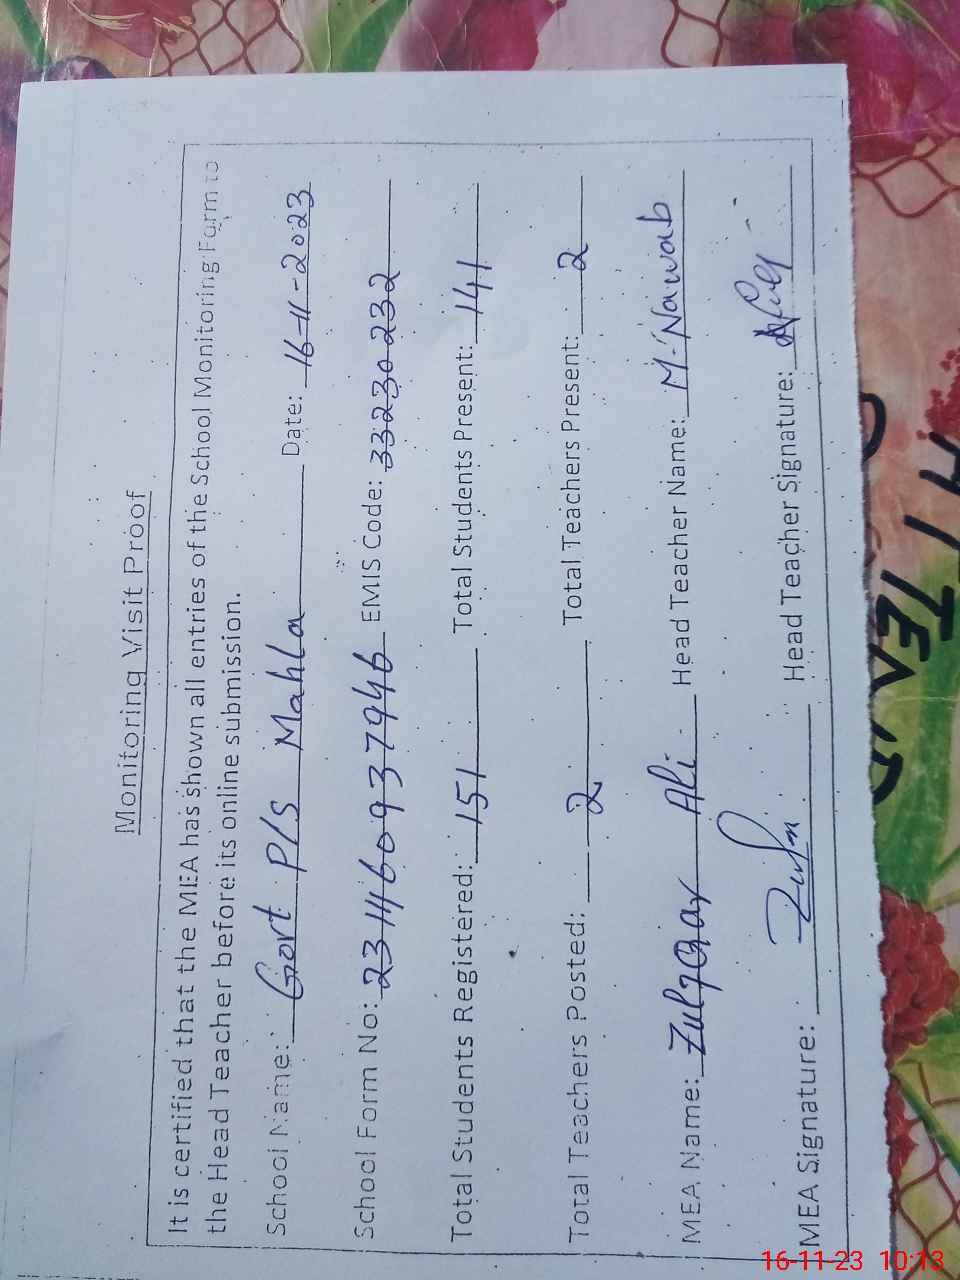 Monitoring Visit Proof
It is certified that the MEA has shown all entries of the School Monitoring Form to
the Head Teacher before its online submission.
School Name: Govt P/S Mahla Date: 16-11-2023
School Form No: 2311160937946 EMIS Code: 33230232
Total Students Registered: 151 Total Students Present: 141
Total Teachers Posted: 2 Total Teachers Present: 2
MEA Name: Zulfqar Ali Head Teacher Name: M-Nawab
MEA Signature: Head Teacher Signature:
16-11-23 10:13